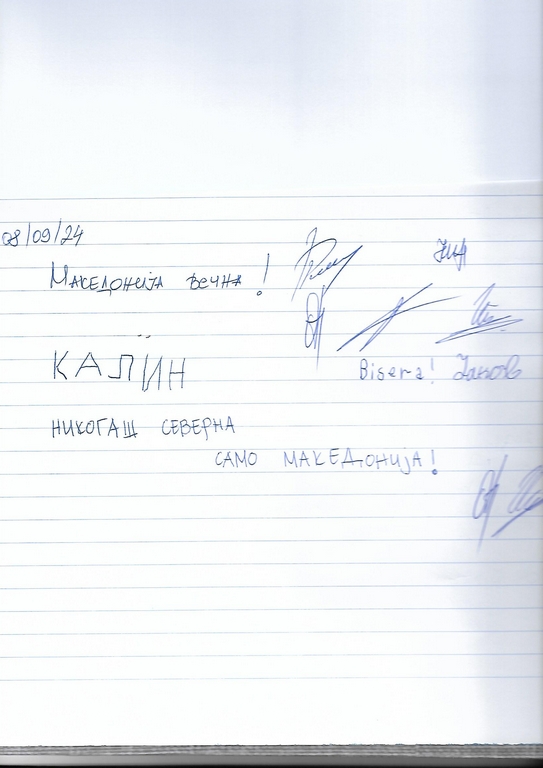 08/09/24
Македонија вечна!
Bisera!
КАЛЇН
НИКОГАШ СЕВЕРНА
САМО МАКЕДОНИЈА!